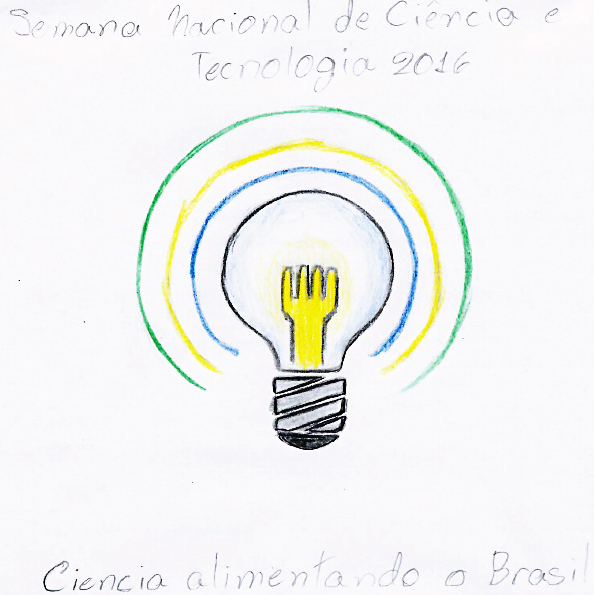 Semana Nacional de Ciência e
Tecnologia 2016
Ciencia alimentando o Brasil